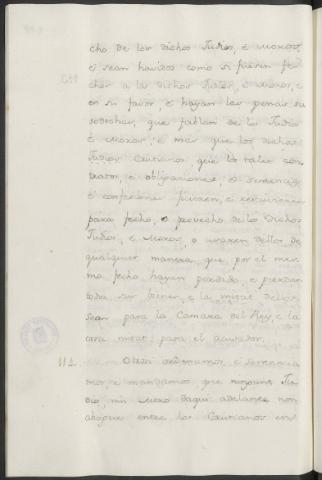 cho de los dichos Judios, é Moros,
é sean havidos como si fuesen fe
chos a los dichos Judios, é Moros, é
en su favor, é hayan las penas su
sodichas, que fablan de los Judios
é Moros; é mas que los dichos
Judios Cristianos, que los tales con
tratos, é obligaciones, é sentencias,
é confesiones ficieren, é recivieren
para fecho, é provecho de los dichos
Judios, é Moros, o usaren dellos de
qualquier manera, que por el mes
mo fecho hayan perdido, é pierdan
todos sus bienes, é la mitad dellos
sean para la Camara del Rey, é la
otra mitad para el acusador.
112. Otrosi ordenamos, é sentencia
mos, é mandamos que ninguno Ju
dio, nin Moro daqui adelante non
abogue entre los Cristianos en